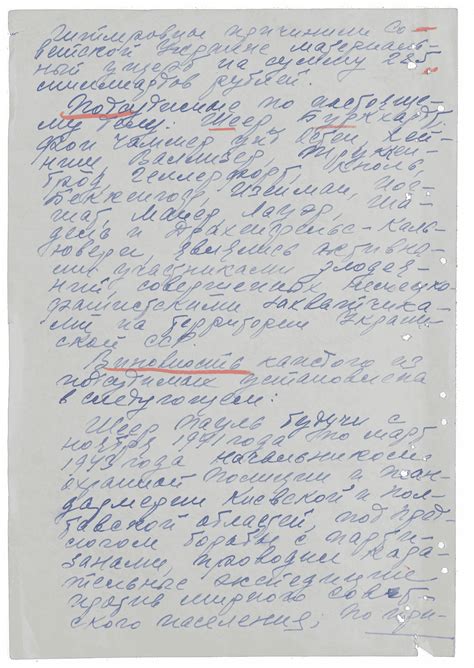 Гитлеровцы причинили Со-
ветской Украине материаль-
ный ущерб на сумму 285
миллиардов рублей.
Подсудимые по настояще-
му делу: Шеер, Буркхардт,
фон Чаммер унд Остен, Хей-
ниш, Валлизер, Труккен-
брод, Геллерфорт, Кноль,
Беккенгоф, Изенман,
Майер, Лауэр, Ша-
дель и Драхенфельс-Каль-
ювери, являлись активны-
ми участниками злодея-
ний, совершенных немецко-
фашистскими захватчика-
ми на территории Украин-
ской ССР.
Виновность каждого из
подсудимых установлена
в следующем:
Шеер Пауль будучи с
ноября 1941 года по март
1943 года начальником
охранной полиции и жан-
дармерии Киевской и Пол-
тавской областей, под пред-
логом борьбы с парти-
занами, проводил кара-
тельные экспедиции
против мирного совет-
ского населения;